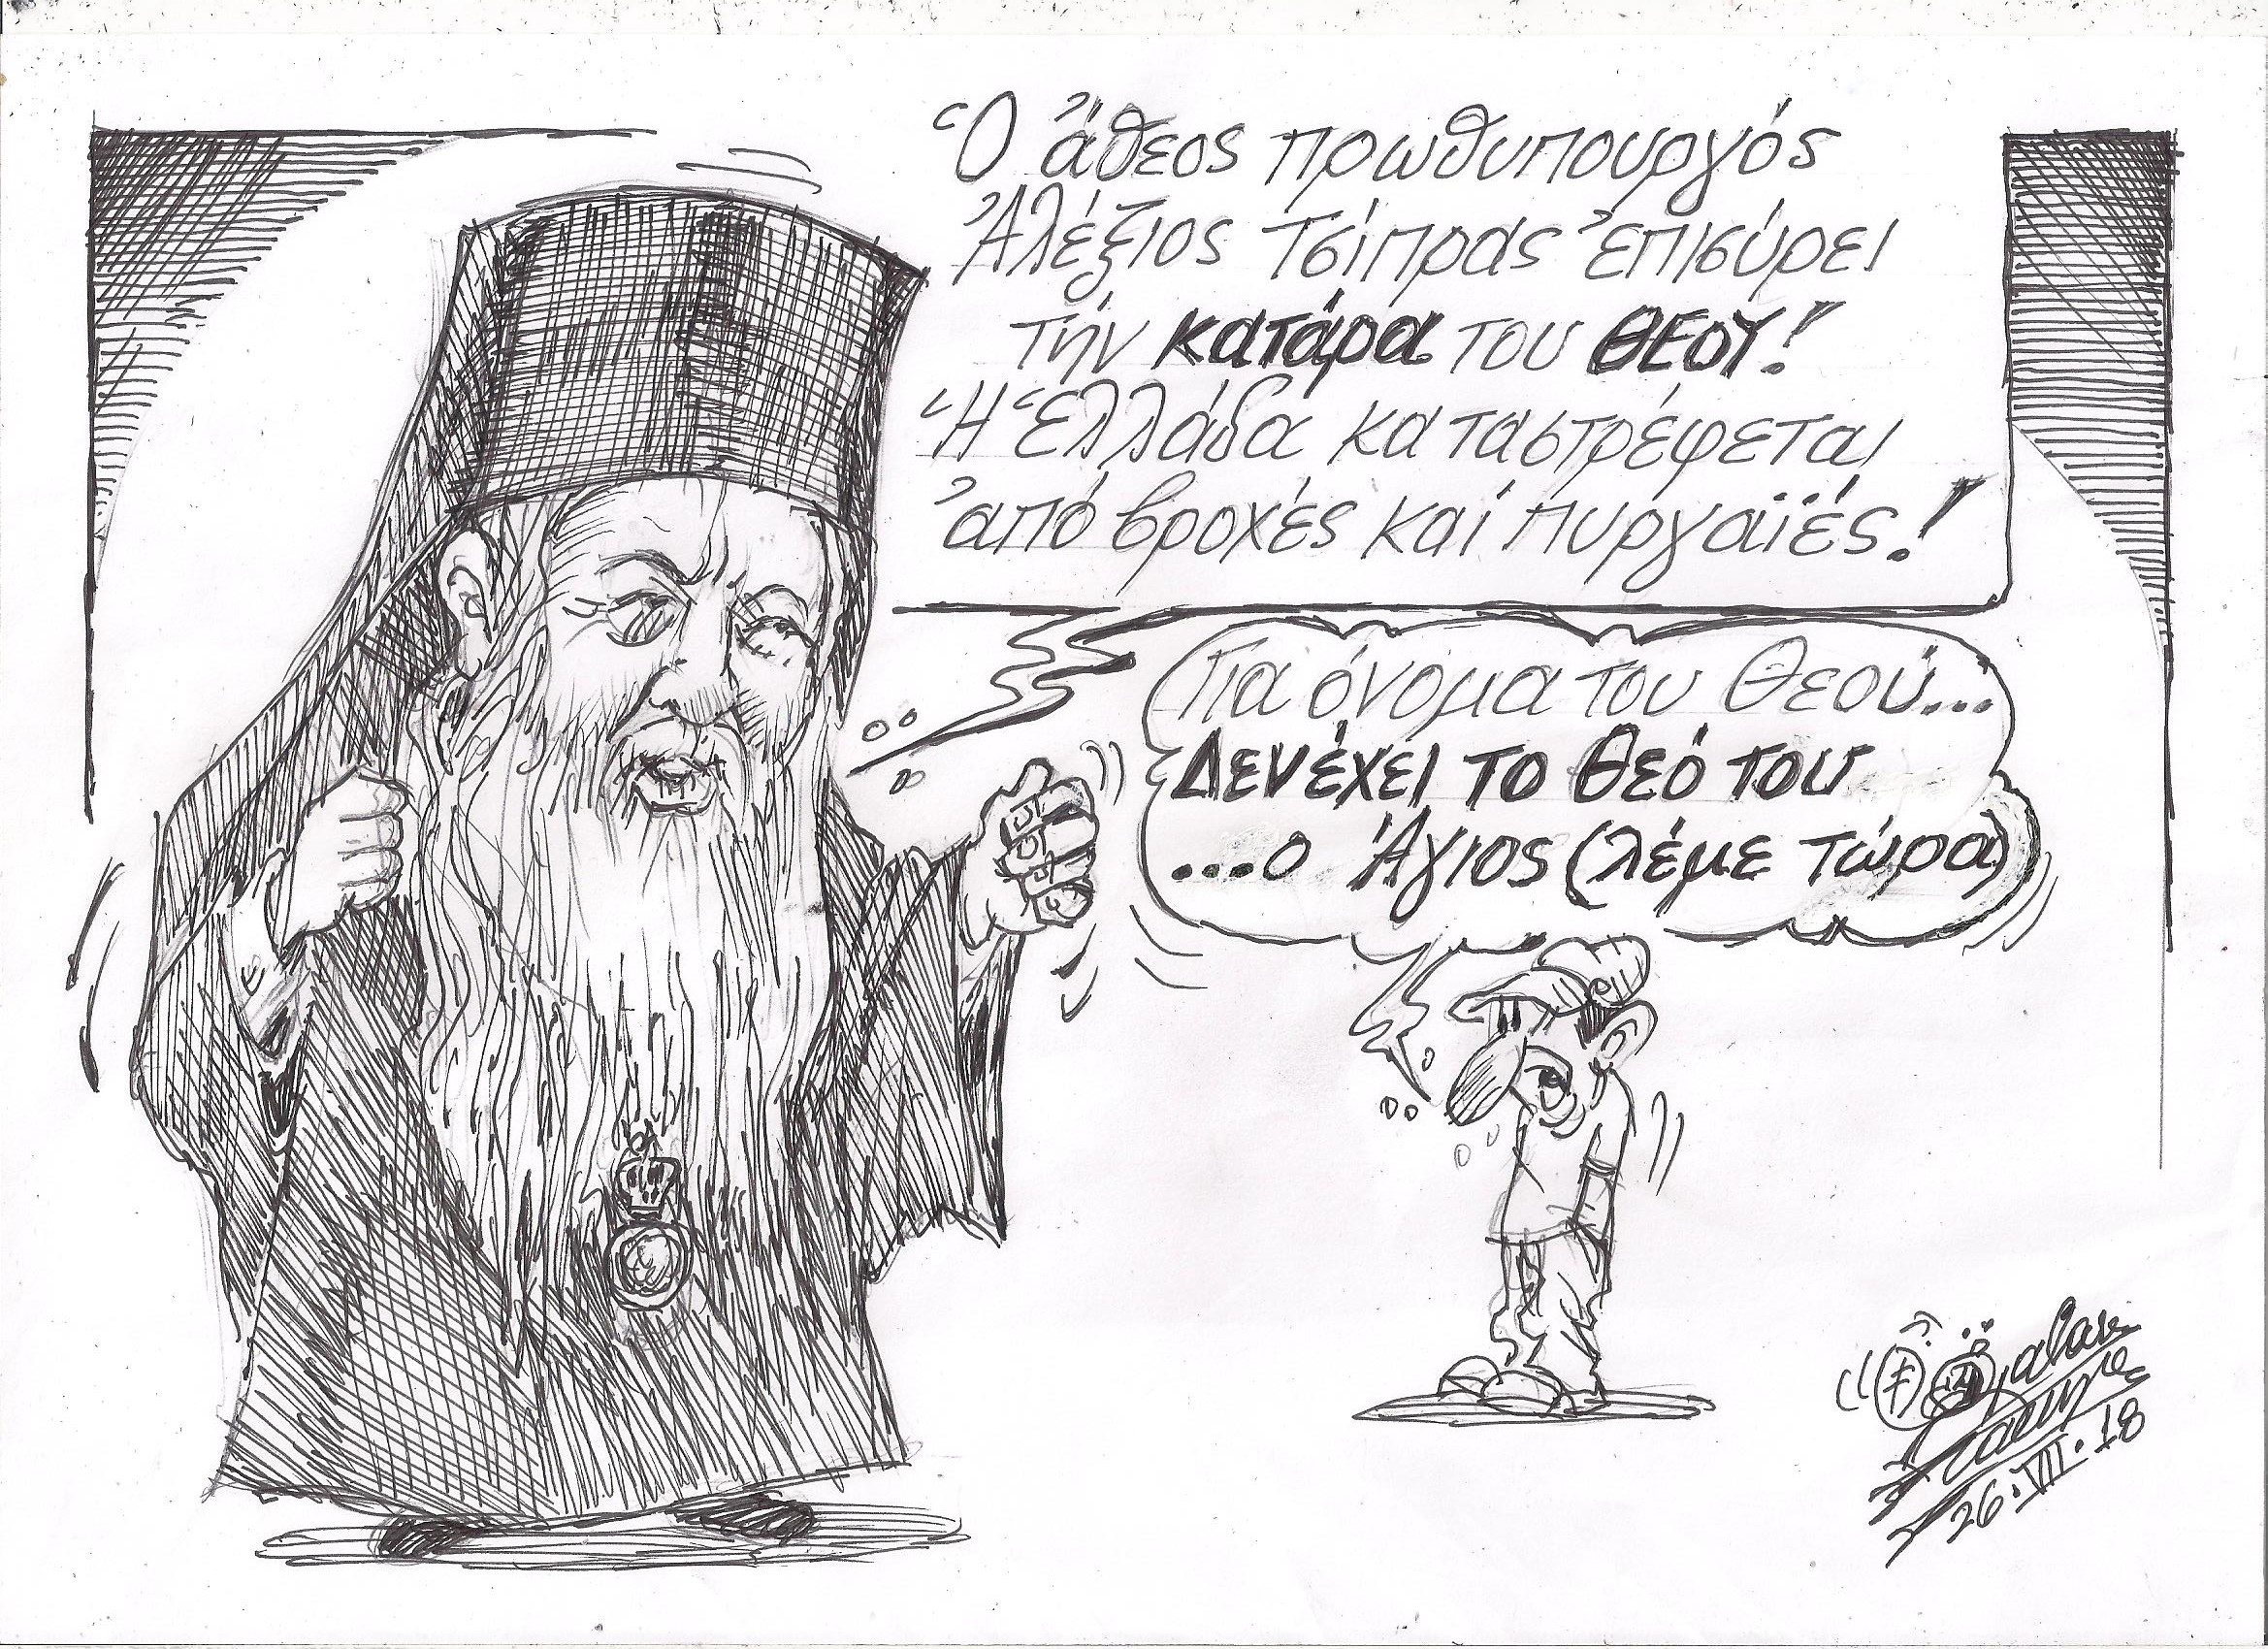 Ὁ ἄθεος πρωθυπουργός
Ἀλέξιος Τσίπρας ἐπισύρει
τήν κατάρα του ΘΕΟΥ!
Ἡ Ἑλλάδα καταστρέφεται
ἀπό βροχές καί πυργαϊές!
Για όνομα του Θεού...
Δεν έχει το Θεό του
...ο Άγιος (λέμε τώρα)
26.VII.18